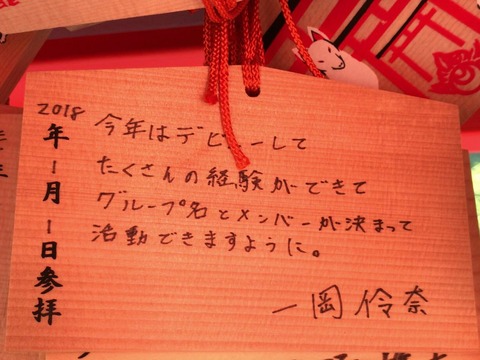 2018
年1月1日参拝
今年はデビューして
たくさんの経験ができて
グループ名とメンバーが決まって
活動できますように。
一岡伶奈